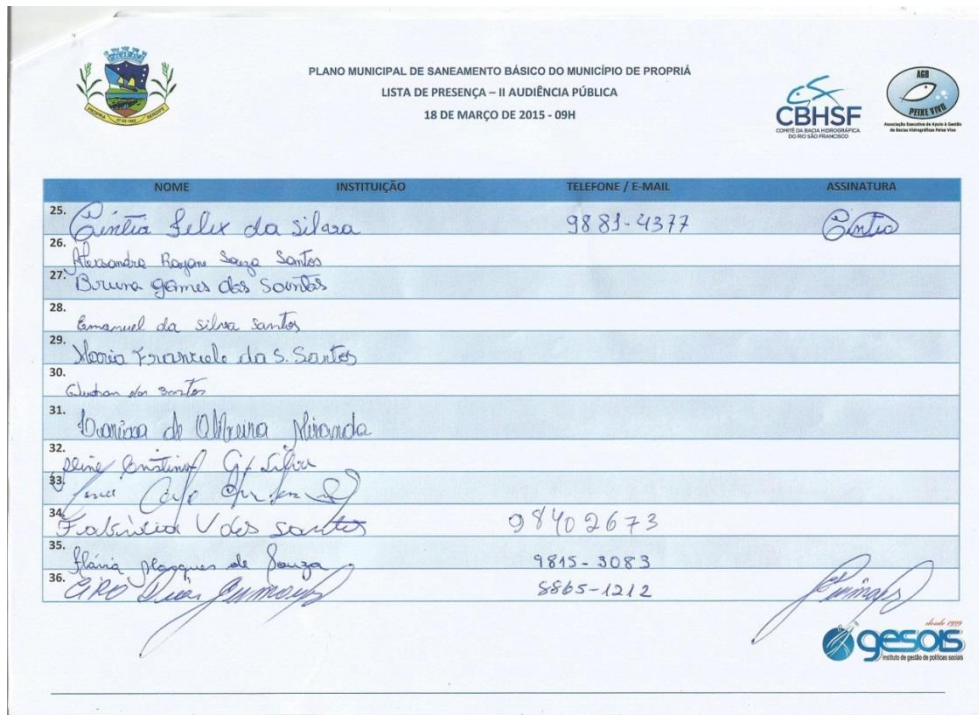 PLANO MUNICIPAL DE SANEAMENTO BÁSICO DO MUNICÍPIO DE PROPRIÁ
LISTA DE PRESENÇA – II AUDIÊNCIA PÚBLICA
18 DE MARÇO DE 2015 - 09H
CBHSF
COMITÊ DA BACIA HIDROGRÁFICA
DO RIO SÃO FRANCISCO
AGB
PEIXE VIVO
Associação Executiva de Apoio à Gestão
de Bacias Hidrográficas Peixe Vivo
NOME INSTITUIÇÃO TELEFONE / E-MAIL ASSINATURA
25. Cintia Felix da Silva 9881-4377 Cintia
26. Alessandra Rayane Souza Santos
27. Bruna gomes dos Santos
28. Emanuel da silva santos
29. Maria Franciele da S. Santos
30. dos Santos
31. de Oliveira Miranda
32. Silva
33.
34. Fabricia V dos santos 98402673
35. Flávia Marques de Souza 9815-3083
36. CIRO Guimarães 8865-1212
desde 1999
gesois
instituto de gestão de políticas sociais